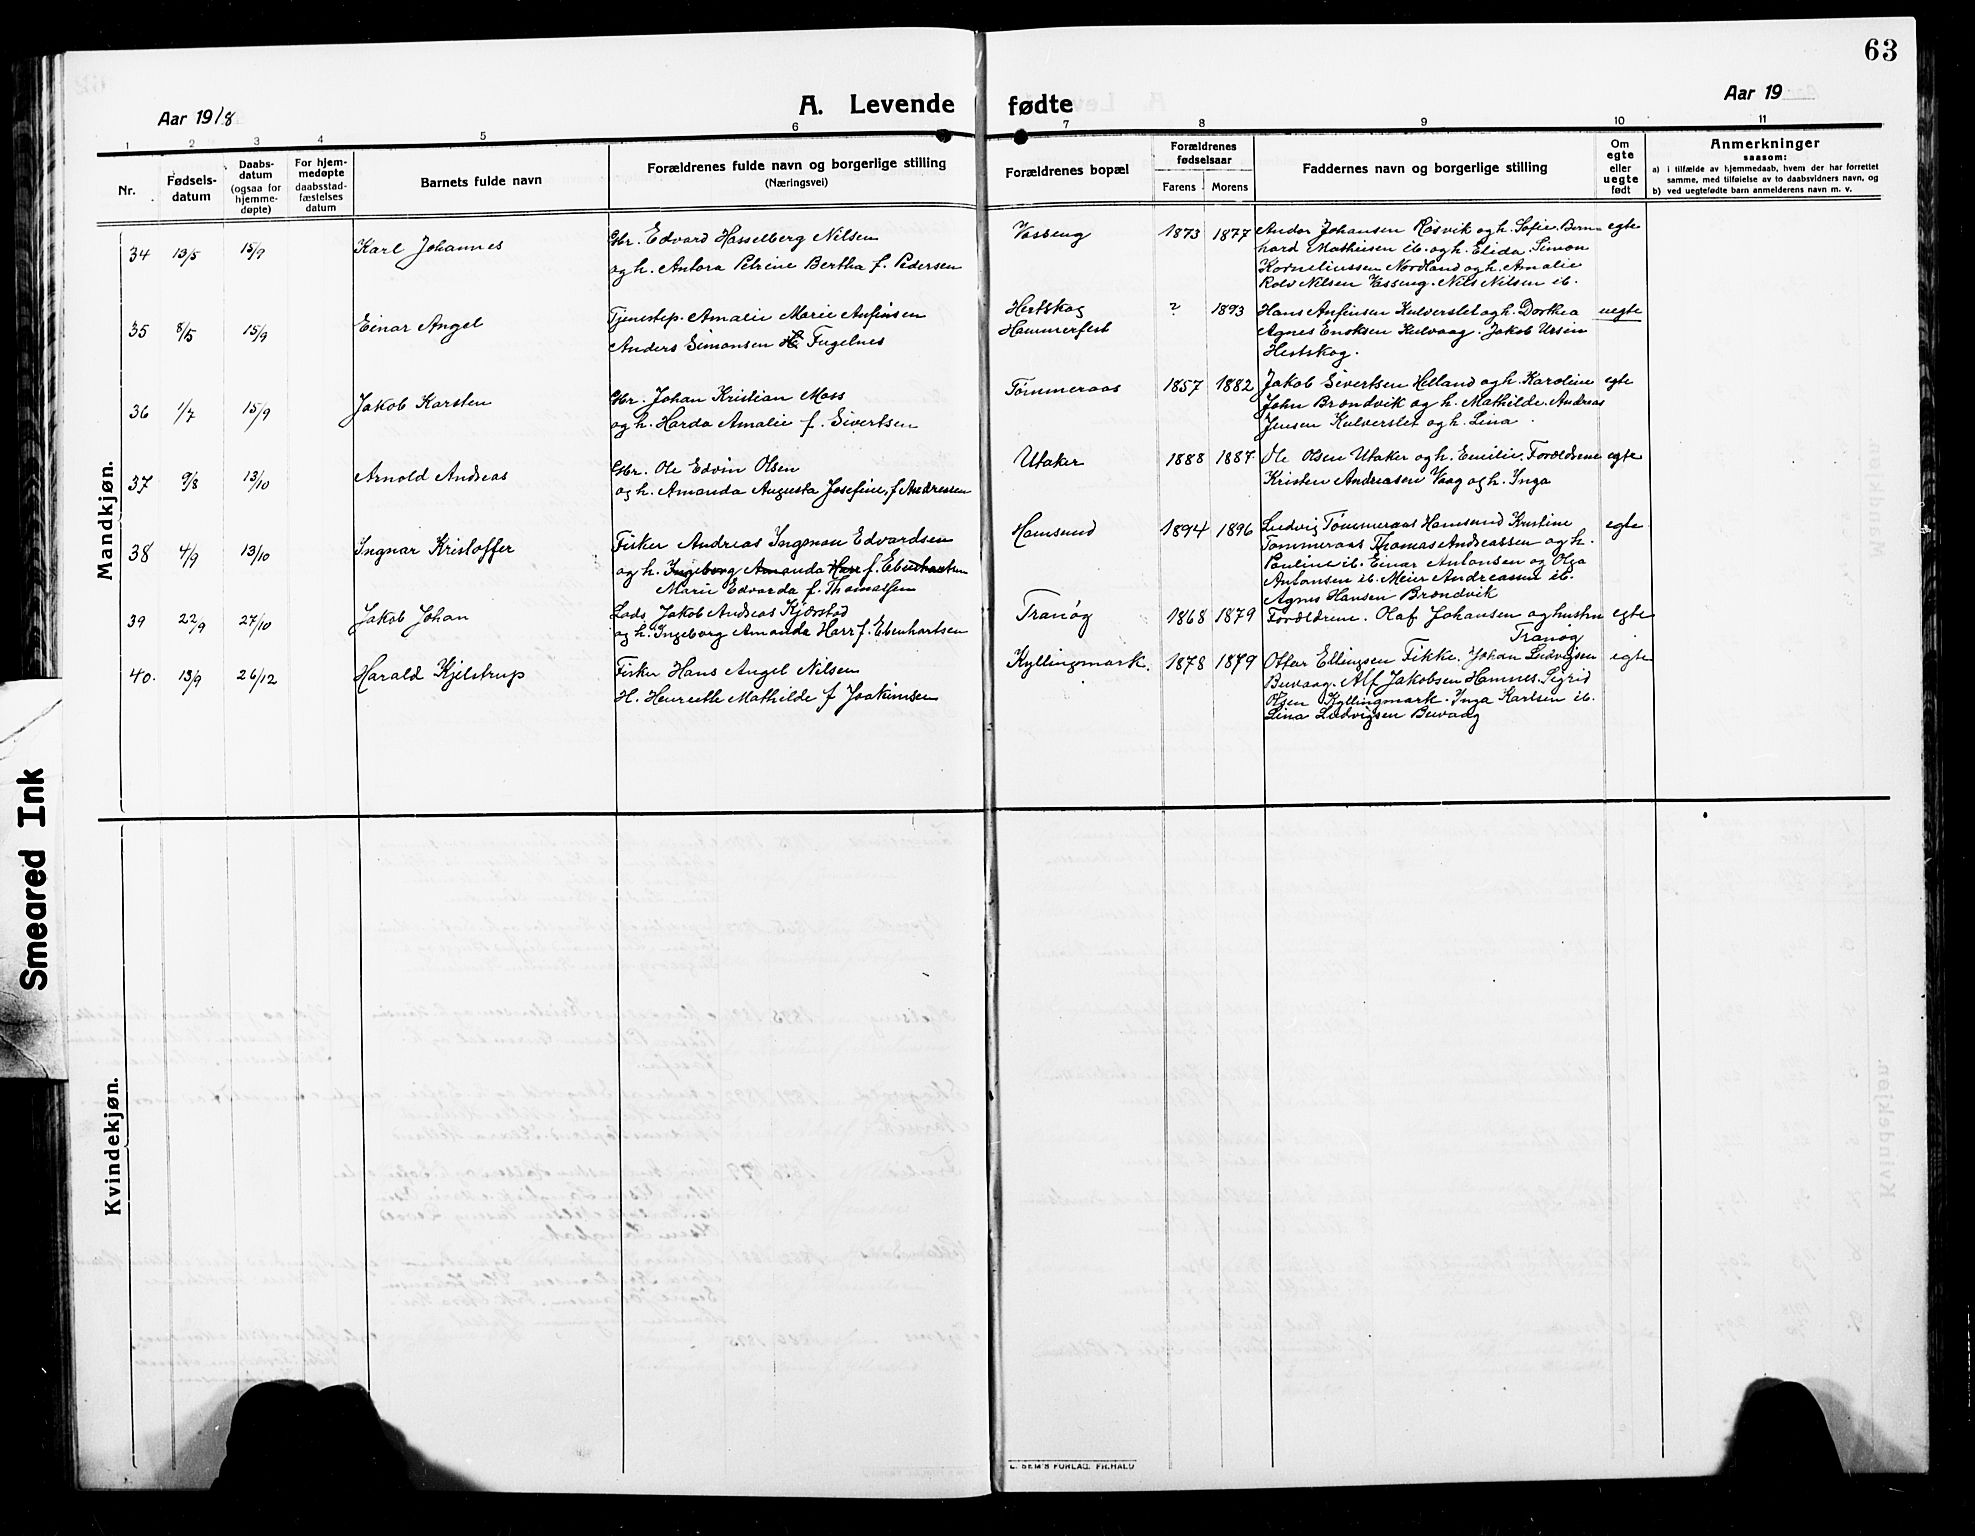 63
Aar 1918
A. Levende fødte
Aar 19
1 2 3 4 5 6 7 8 9 10 11
Nr.
Fødsels-
datum
Daabs-
datum
(ogsaa for
hjemme-
døpte)
For hjem-
medøpte
daabsstad-
fæstelses
datum
Barnets fulde navn
Forældrenes fulde navn og borgerlige stilling
(Næringsvei)
Forældrenes bopæl
Forældrenes
fødselsaar
Farens Morens
Faddernes navn og borgerlige stilling
Om
egte
eller
uegte
født
Anmerkninger
saasom:
a) i tilfælde av hjemmedaab, hvem der har forrettet
samme, med tilføielse av to daabsvidners navn, og
b) ved uegtefødte barn anmelderens navn m. v.
Mandkjøn.
34 13/5 15/9 Karl Johannes
Gbr. Edvard Hasselberg Nilsen
og h. Antora Petrine Bertha f. Pedersen
Vasseng 1873 1877
Andor Johansen Røsvik og h. Sofie. Bern-
hard Mathisen ib. og h. Elida. Simon
Korneliussen Nordland og h. Amalie
Rolv Nilsen Vasseng. Nils Nilsen ib.
egte
35 8/5 15/9 Einar Angel
Tjenestep. Amalie Marie Anfinsen
Anders Simonsen Fugelnes
Hestskog
Hammerfest
? 1893
Hans Anfinsen Kulverslet og h. Dorthea
Agnes Enoksen Kulvaag. Jakob Ursin
Hestskog.
uegte
36 1/7 15/9 Jakob Karsten
Gbr. Johan Kristian Moss
og h. Harda Amalie f. Sivertsen
Tømmeraas 1857 1882
Jakob Sivertsen Helland og h. Karoline
John Brøndvik og h. Mathilde. Andreas
Jensen Kulverslet og h. Lina.
egte
37 9/8 13/10 Arnold Andreas
Gbr. Ole Edvin Olsen
og h. Amanda Augusta Josefine, f. Andressen
Utaker 1888 1887
Ole Olsen Utaker og h. Emilie. Forældrene
Kristen Andreasen Vaag og h. Inga
egte
38 4/9 13/10 Ingnar Kristoffer
Fisker Andreas Ingman Edvardsen
og h. Ingeborg Amanda Harr f. Ebenhartsen
Marie Edvarda f. Thomassen
Hamsund 1894 1896
Ludvig Tømmeraas Hamsund Kristine
Tømmeraas Thomas Andreassen og h.
Pauline ib. Einar Antonsen og Olga
Antonsen ib. Meier Andreassen ib.
Agnes Hansen Brøndvik
egte
39 22/9 27/10 Jakob Johan
Lods Jakob Andreas Kjørstad
og h. Ingeborg Amanda Harr f. Ebenhartsen
Tranøy 1868 1879
Forældrene. Olaf Johansen og hustru
Tranøy
egte
40. 13/9 26/12 Harald Kjelstrup
Fisker Hans Angel Nilsen
H. Henrette Mathilde f Joakimsen
Kyllingmark. 1878 1879
Ottar Ellingsen Fikke. Johan Ludvigsen
Buvaag. Alf Jakobsen Hamnes. Sigrid
Olsen Kyllingmark. Inga Karlsen ib.
Lina Ludvigsen Buvaag
egte
Kvindekjøn.
Smeared Ink
E. SEM'S FORLAG. FR.HALD